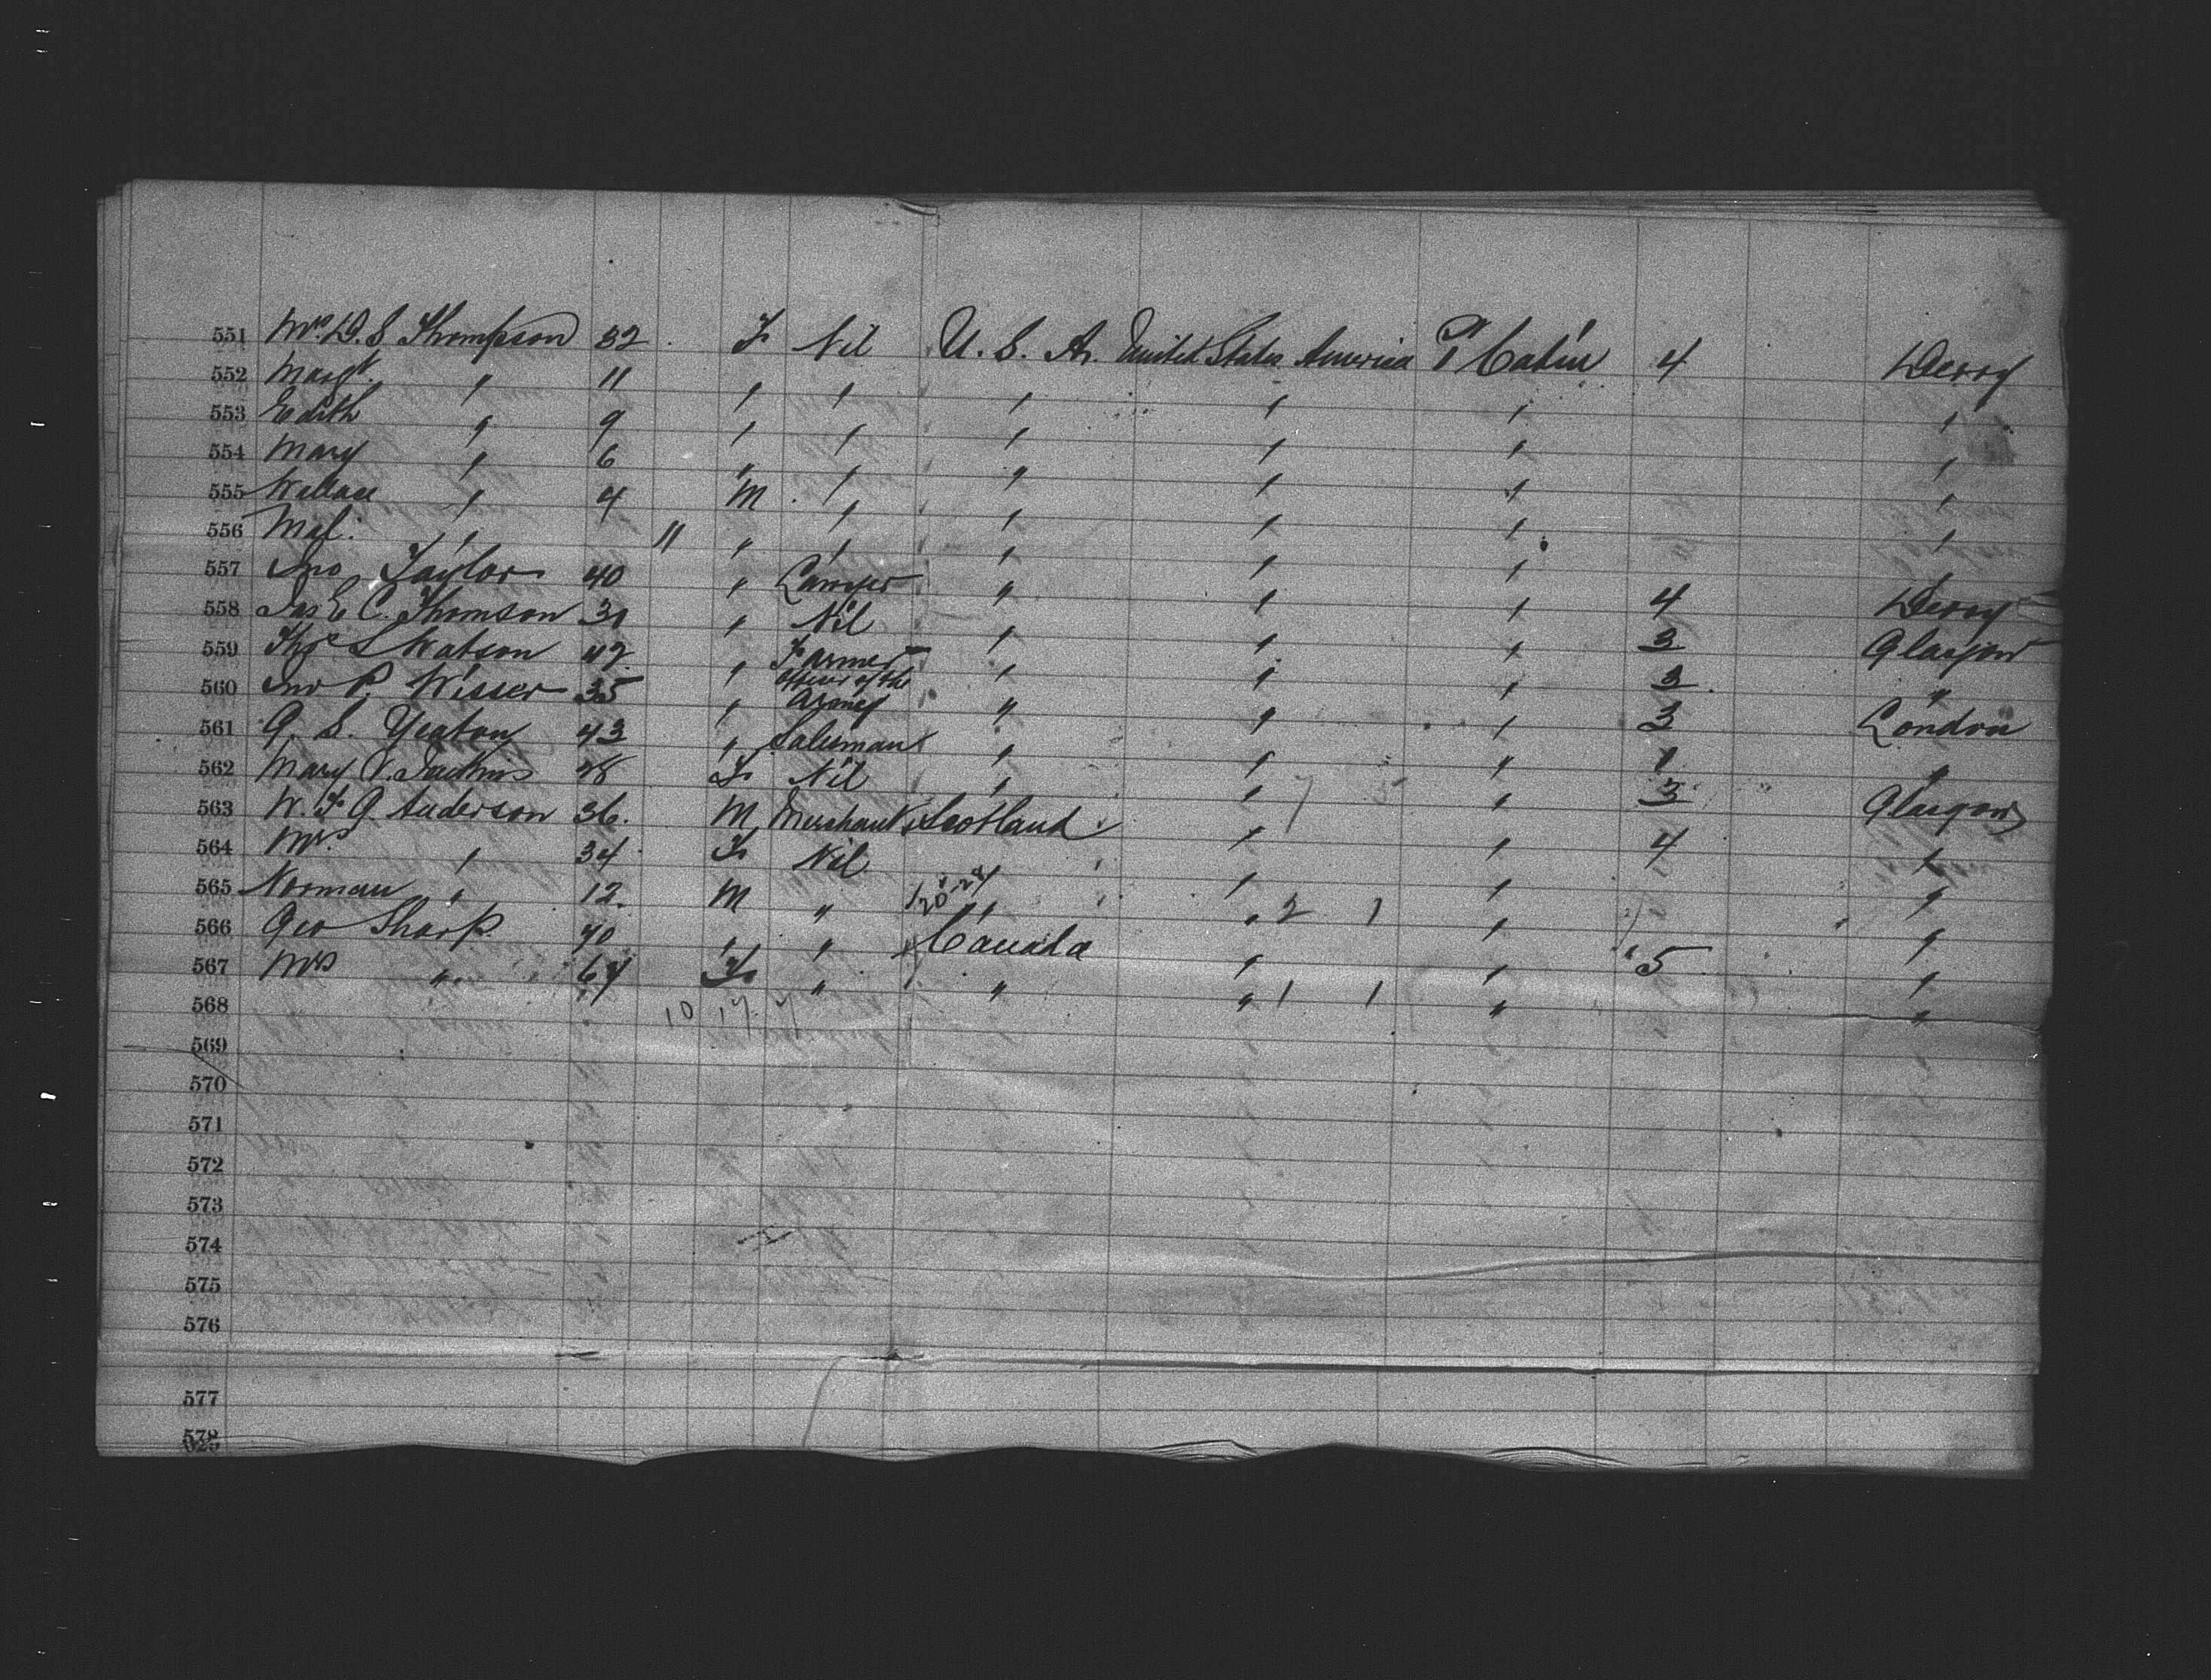 551 Mrs. D. S. Thompson 32 F Nil U. S. A. United States America Cabin 4 Derry
552 Margt. " 11 " " " " " "
553 Edith " 9 " " " " " "
554 Mary " 6 " " " " " "
555 Wallace " 4 M " " " " "
556 Mal. " 11 " " " " " "
557 Jno Taylor 40 " Lawyer " " " 4 Derry
558 Jas E C. Thomson 31 " Nil " " " 3 Glasgow
559 Thos S Watson 42 " Farmer " " " 3 "
560 Jno P. Wisser 35 " Officer of the Army " " " 3 London
561 G. S. Yeaton 43 " Salesman " " " 1 "
562 Mary V. 28 F Nil " " " 3 Glasgow
563 W. F. G. Anderson 36. M Merchant Scotland " " 4 "
564 Mrs. " 34 F Nil " " " "
565 Norman " 12. M " " " 2 1 " "
566 Geo Sharp 70 " " Canada " " 5 "
567 Mrs " 64 F " " " 1 1 " "
568 10 17 7
569
570
571
572
573
574
575
576
577
578